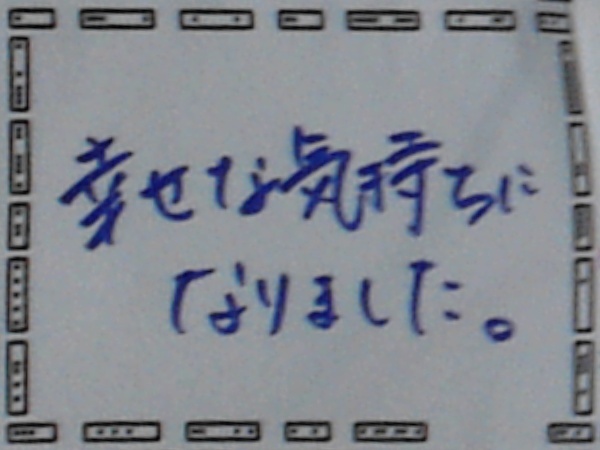 幸せな気持ちに
なりました。